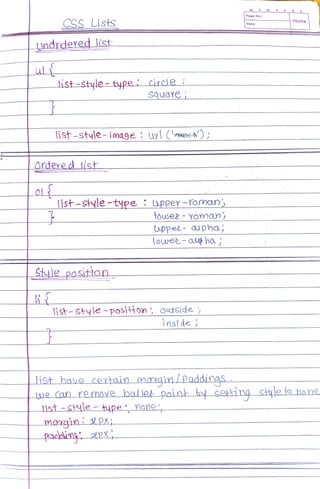 M T W T F S S
Page No.:
Date:
YOUVA
CSS Lists
Unordered list
ul {
list-style-type: circle ;
square ;
}
list-style-image: url (' ');
Ordered list
ol {
list-style-type : upper-roman;
} lower-roman;
upper-alpha;
lower-alpha;
Style position
li {
list-style-position: outside ;
inside ;
}
list have certain margin/paddings.
we can remove bullet point by setting style to none
list-style-type: none;
margin: xpx;
padding: xpx;